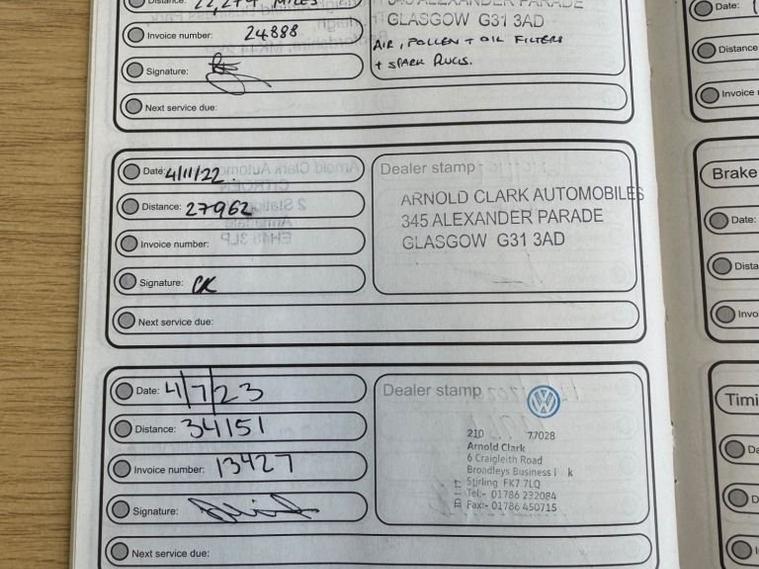 Distance: 22,279 MILES
Invoice number: 24888
Signature:
Next service due:
345 ALEXANDER PARADE
GLASGOW G31 3AD
AIR, POLLEN + OIL FILTERS
+ SPARK PLUGS.
Date: 4/11/22
Distance: 27962
Invoice number:
Signature: CK
Next service due:
Dealer stamp
ARNOLD CLARK AUTOMOBILES
345 ALEXANDER PARADE
GLASGOW G31 3AD
Date: 4/7/23
Distance: 34151
Invoice number: 13427
Signature:
Next service due:
Dealer stamp
210 77028
Arnold Clark
6 Craigleith Road
Broadleys Business
Stirling FK7 7LQ
Tel:- 01786 232084
Fax:- 01786 450715
Date:
Distance
Invoice
Brake
Date:
Dista
Invo
Timi
Da
D
I